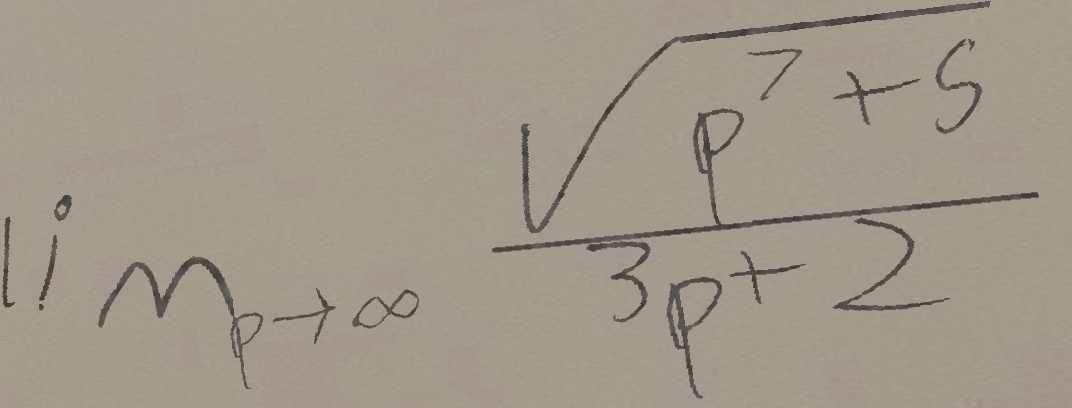 lim_{p→∞} \frac{\sqrt{p^7+5}}{3p+2}